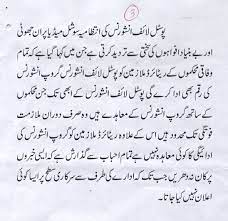 (3)
پوسٹل لائف انشورنس کی انتظامیہ سوشل میڈیا پر ان جھوٹی
اور بے بنیاد افواہوں کی سختی سے تردید کرتی ہے جن میں کہا گیا ہے کہ تمام
وفاقی محکموں کے ریٹائرڈ ملازمین کو پوسٹل لائف انشورنس گروپ انشورنس
کی رقم بھی ادا کرے گی پوسٹل لائف انشورنس کے ابھی تک جتنے بھی
محکموں سے گروپ انشورنس کے معاہدے ہیں وہ صرف دوران ملازمت
فوتگی تک محدود ہیں اس کے علاوہ ریٹائرڈ ملازمین کو گروپ انشورنس کی
ادائیگی کا کوئی معاہدہ نہیں ہے تمام احباب سے گذارش ہے کہ ایسی خبروں
پر کان نہ دھریں جب تک کہ ادارے کی طرف سے سرکاری سطح پر ایسا کوئی
اعلان نہیں کیا جاتا۔